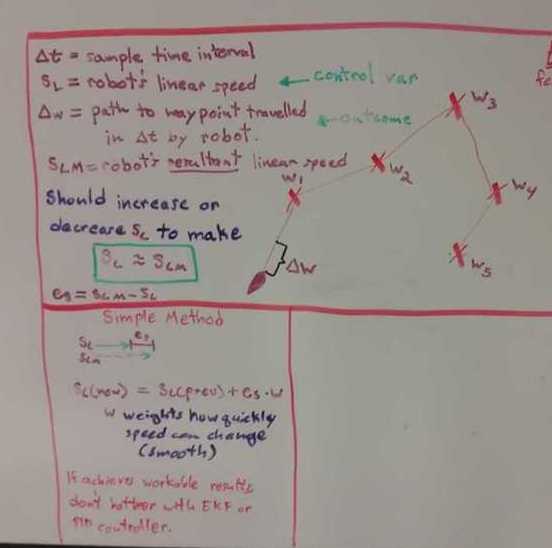 Δt = sample time interval
SL = robot's linear speed ← control var
Δw = path to waypoint travelled
in Δt by robot. ← outcome
SLM = robot's resultant linear speed
Should increase or
decrease SL to make
SL ≈ SLM
es = SLM - SL
W1
W2
W3
W4
W5
Δw
Simple Method
SL
es
SLM
SL(now) = SL(prev) + es · w
w weights how quickly
speed can change
(smooth)
If achieves workable results
don't bother with EKF or
controller.